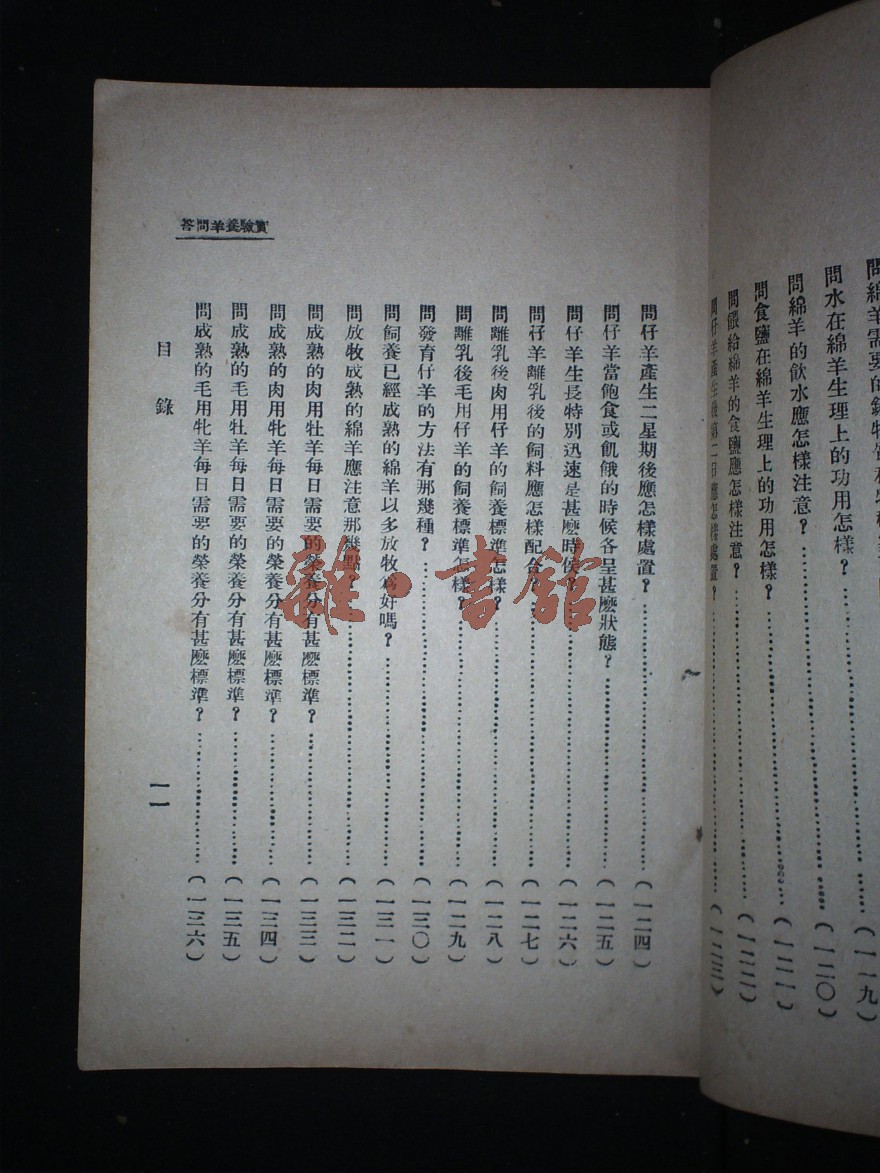 問綿羊需要的
問水在綿羊生理上的功用怎樣?……(一一九)
問綿羊的飲水應怎樣注意?……(一二〇)
問食鹽在綿羊生理上的功用怎樣?……(一二一)
問餵給綿羊的食鹽應怎樣注意?……(一二二)
問仔羊產生後第二日應怎樣處置?……(一二三)
實驗養羊問答
問仔羊產生二星期後應怎樣處置?……(一二四)
問仔羊當飽食或飢餓的時候各呈甚麽狀態?……(一二五)
問仔羊生長特別迅速是甚麽時侯?……(一二六)
問仔羊離乳後的飼料應怎樣配合?……(一二七)
問離乳後肉用仔羊的飼養標準怎樣?……(一二八)
問離乳後毛用仔羊的飼養標準怎樣?……(一二九)
問發育仔羊的方法有那幾種?……(一三〇)
問飼養已經成熟的綿羊以多放牧爲好嗎?……(一三一)
問放牧成熟的綿羊應注意那幾點?……(一三二)
問成熟的肉用牡羊每日需要的榮養分有甚麽標準?……(一三三)
問成熟的肉用牝羊每日需要的榮養分有甚麽標準?……(一三四)
問成熟的毛用牡羊每日需要的榮養分有甚麽標準?……(一三五)
問成熟的毛用牝羊每日需要的榮養分有甚麽標準?……(一三六)
目錄
一一
雜·書館